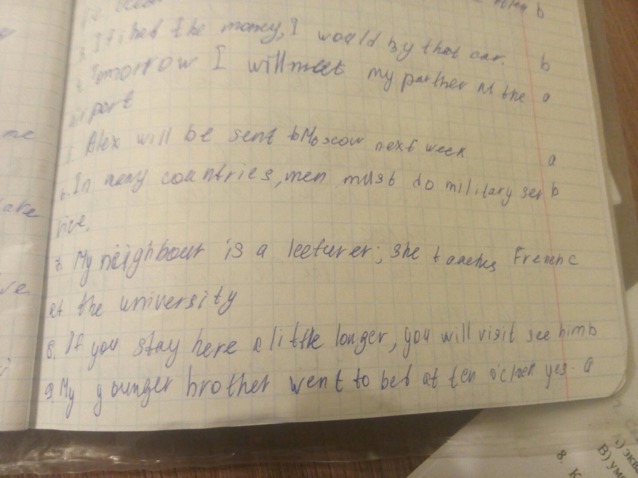 3. If i had the money, I would by that car. b
4. Tomorrow I will meet my partner at the a
airport
5. Alex will be sent to Moscow next week a
6. In many countries, men must do military ser b
vice.
7. My neighbour is a lecturer; she teaches French c
at the university
8. If you stay here a little longer, you will visit see him b
9. My younger brother went to bed at ten o'clock yes. a
8.
B)